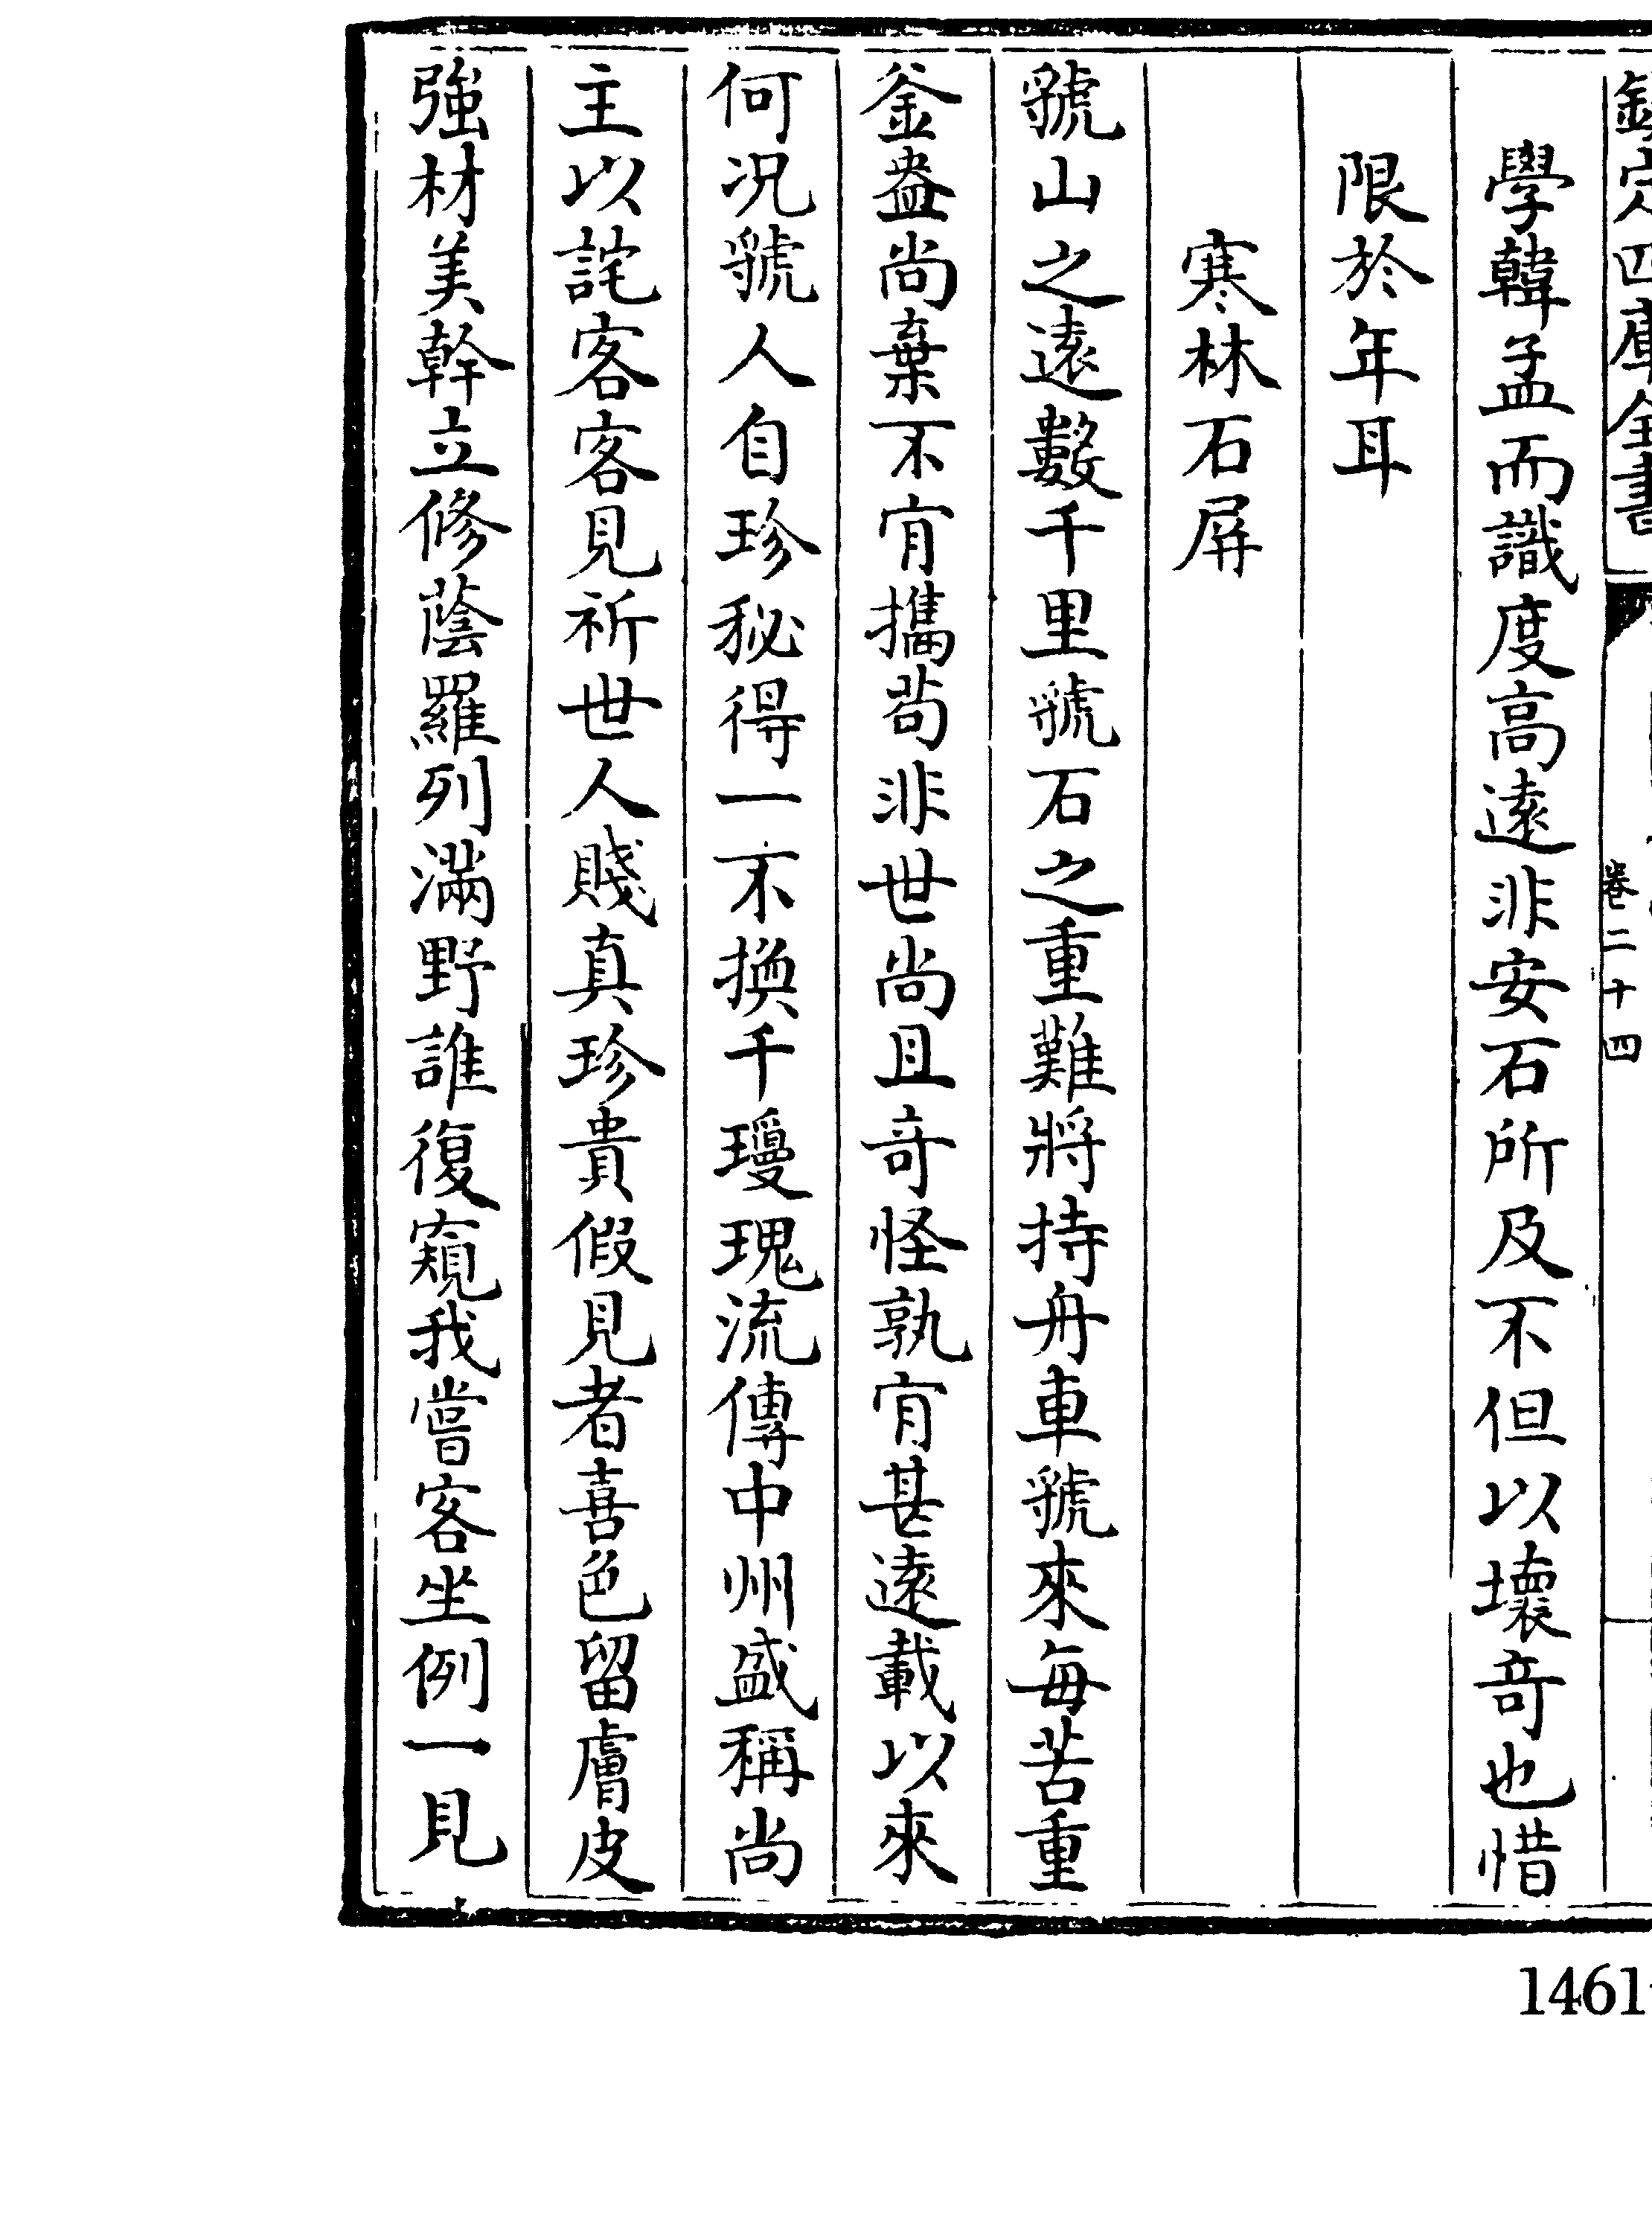 欽定四庫全書
卷二十四
學韓孟而識度高遠非安石所及不但以壞奇也惜
限於年耳
寒林石屏
虢山之遠數千里虢石之重難將持舟車虢來每苦重
釜盎尚棄不肎攜茍非世尚且奇怪孰肎甚遠載以來
何况虢人自珍秘得一不換千瓊瑰流傳中州盛稱尚
主以詫客客見祈世人賤真珍貴假見者喜色留膚皮
強材美幹立修蔭羅列滿野誰復窺我嘗客坐例一見
1461